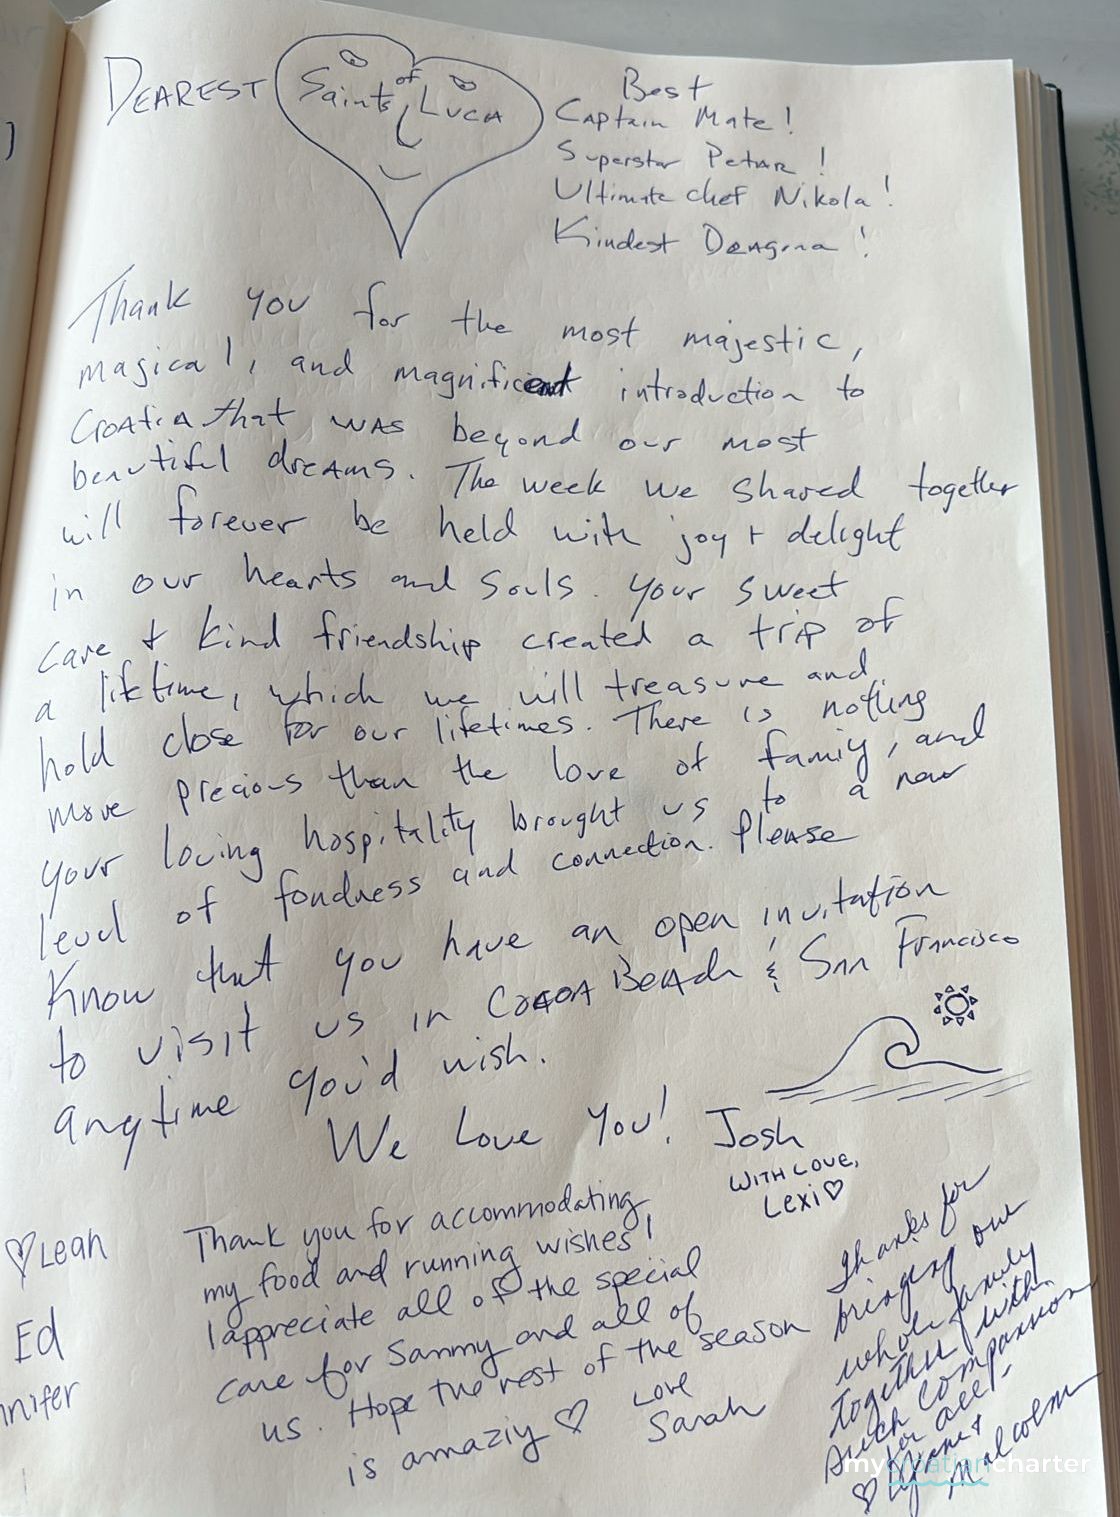 DEAREST Saints of Luca
Best
Captain Mate!
Superstar Petar!
Ultimate chef Nikola!
Kindest Dragina!
Thank you for the most majestic,
magical, and magnificent introduction to
Croatia that was beyond our most
beautiful dreams. The week we shared together
will forever be held with joy + delight
in our hearts and souls. Your sweet
care + kind friendship created a trip of
a lifetime, which we will treasure and
hold close for our lifetimes. There is nothing
more precious than the love of family, and
your loving hospitality brought us to a new
level of fondness and connection. Please
Know that you have an open invitation
to visit us in Cocoa Beach & San Francisco
anytime you'd wish.
We Love You! Josh
WITH LOVE,
Lexi ♡
♡ Leah
Ed
nnifer
Thank you for accommodating
my food and running wishes!
I appreciate all of the special
care for Sammy and all of
us. Hope the rest of the season
is amaziy ♡
Love
Sarah
Thanks for
bringing our
whole family
together with
such compassion
for all!
♡ +
Malcolm
mycroatiancharter